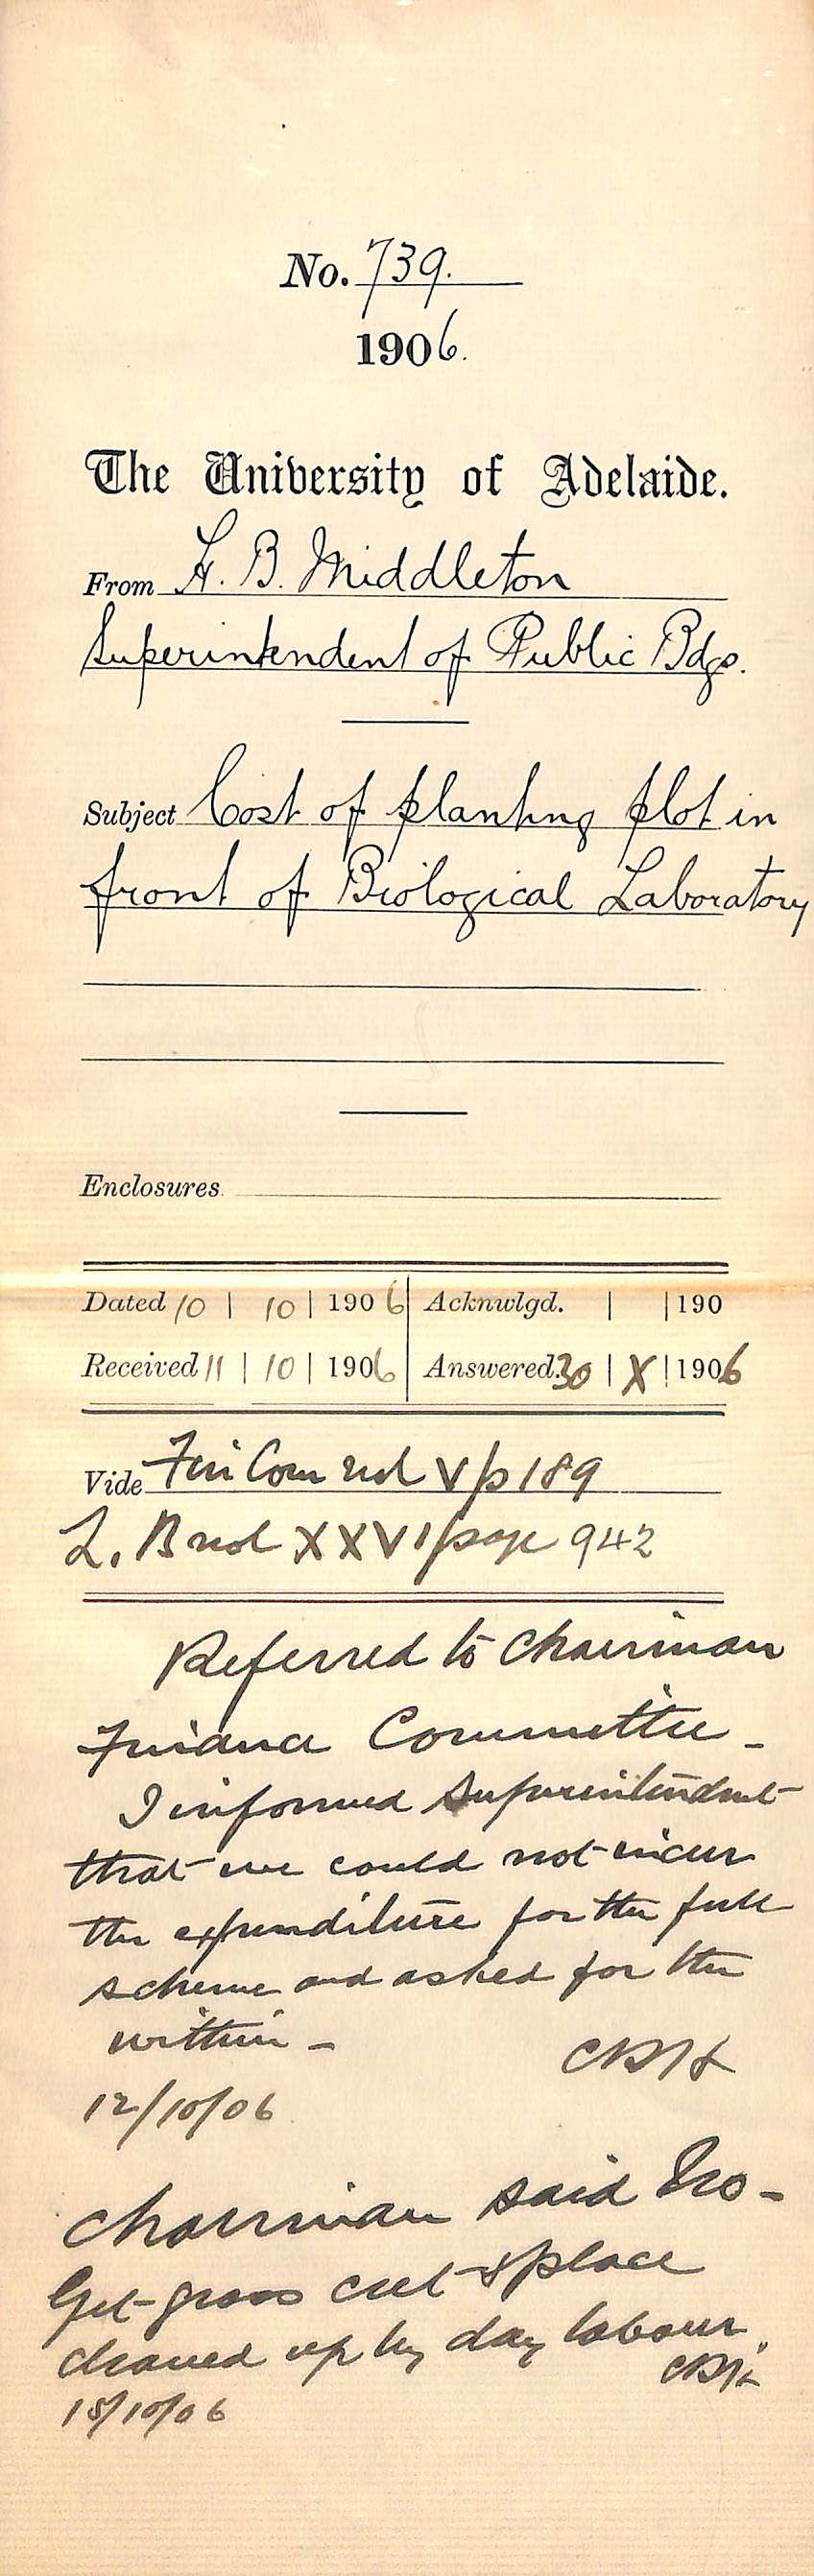 No. 739.
1906.
The University of Adelaide.
From H. B. Middleton
Superintendent of Public Bdgs.
Subject Cost of planting plot in
front of Biological Laboratory
Enclosures
Dated 10 | 10 | 1906 Acknwlgd. | | 190
Received 11 | 10 | 1906 Answered. 30 | X | 1906
Vide Fin Com vol V p 189
L. B vol XXVI page 942
Referred to Chairman
Finance Committee -
I informed Superintendent
that we could not incur
the expenditure for the full
scheme and asked for the
within -
CRH
12/10/06
Chairman said No -
Get grass cut & place
cleaned up by day labour.
CRH
15/10/06